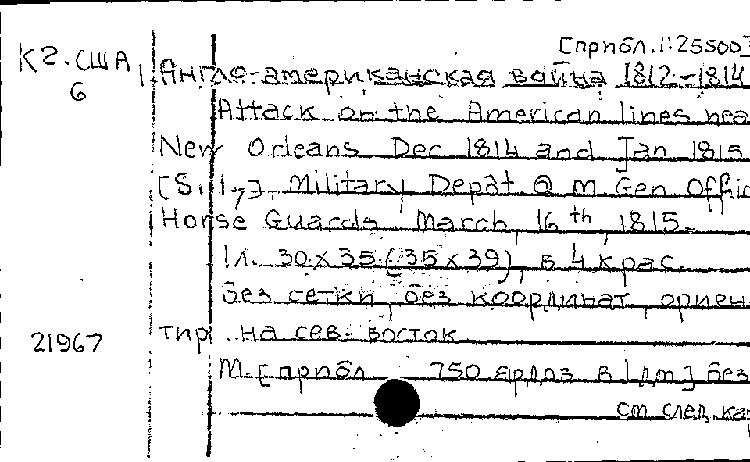 [прибл. 1:25500]
К2. США
6
Англо-американская война 1812-1814
Attack on the American lines nea
New Orleans Dec 1814 and Jan 1815.
[S.l.,] Military Depât Q M. Gen Offic
Horse Guards March, 16 th, 1815.
1л. 30x35 (35x39), в 4 крас.
без сетки, без координат, ориен
21967
тир. на сев-восток
М. [прибл 750 ярдов в 1 дм] без
см след. кар